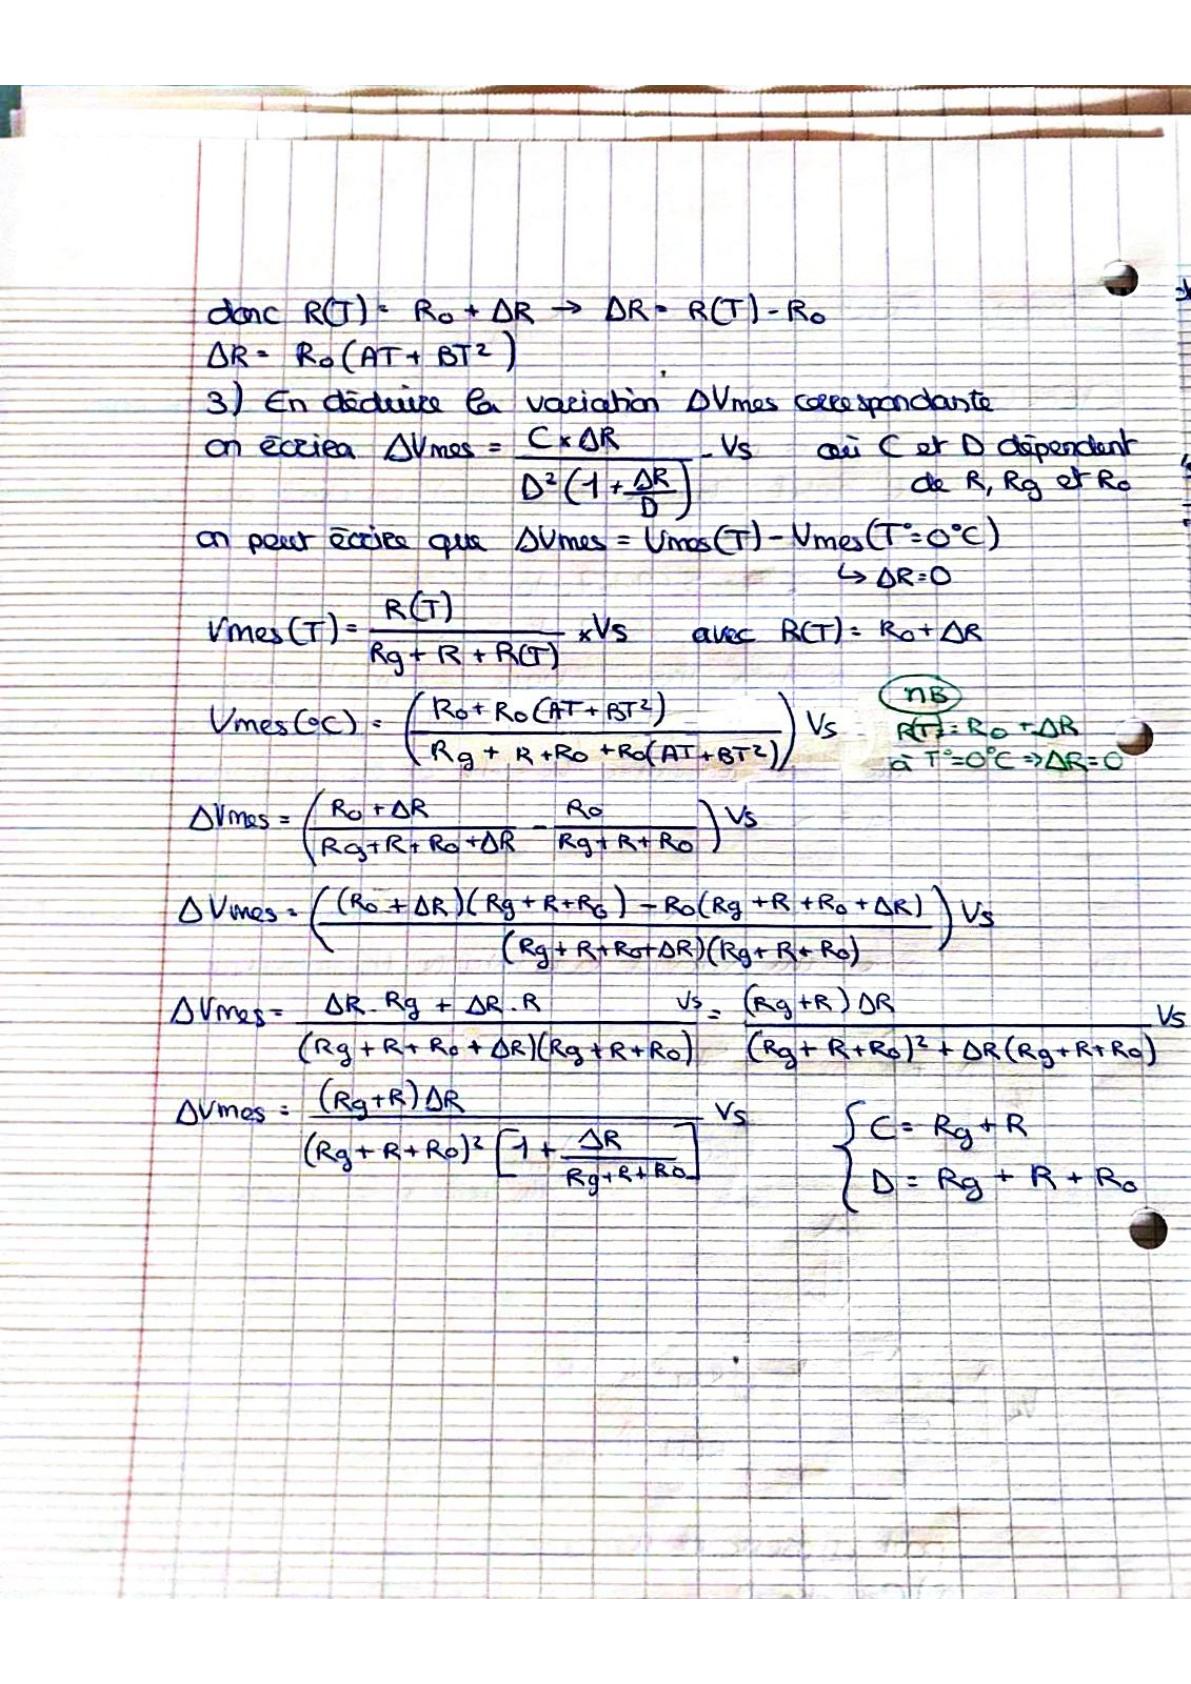 donc R(T) = R₀ + ΔR → ΔR = R(T) - R₀
ΔR = R₀(AT + BT²)
3) En déduire la variation ΔVmes correspondante
on écrira ΔVmes = C × ΔR / D²(1 + ΔR/D) · Vs où C et D dépendent
de R, Rg et R₀
on peut écrire que ΔVmes = Vmes(T) - Vmes(T°=0°C)
↳ ΔR = 0
Vmes(T) = R(T) / (Rg + R + R(T)) × Vs avec R(T) = R₀ + ΔR
Vmes(0C) = ((R₀ + R₀(AT + BT²)) / (Rg + R + R₀ + R₀(AT + BT²))) Vs
nB
R(T) = R₀ + ΔR
à T°=0°C ⇒ ΔR = 0
ΔVmes = ((R₀ + ΔR) / (Rg + R + R₀ + ΔR) - R₀ / (Rg + R + R₀)) Vs
ΔVmes = (((R₀ + ΔR)(Rg + R + R₀) - R₀(Rg + R + R₀ + ΔR)) / ((Rg + R + R₀ + ΔR)(Rg + R + R₀))) Vs
ΔVmes = (ΔR·Rg + ΔR·R) / ((Rg + R + R₀ + ΔR)(Rg + R + R₀)) Vs = (Rg + R)ΔR / ((Rg + R + R₀)² + ΔR(Rg + R + R₀)) Vs
ΔVmes = (Rg + R)ΔR / ((Rg + R + R₀)² [1 + ΔR / (Rg + R + R₀)]) Vs
{ C = Rg + R
D = Rg + R + R₀